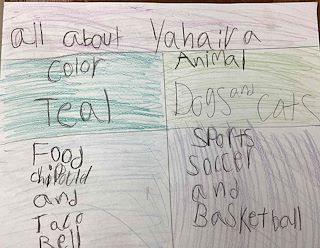 all about Yahaira
Color
Teal
Animal
Dogs and Cats
Food
chipould
and
Taco
Bell
Sports
Soccer
and
Basketball